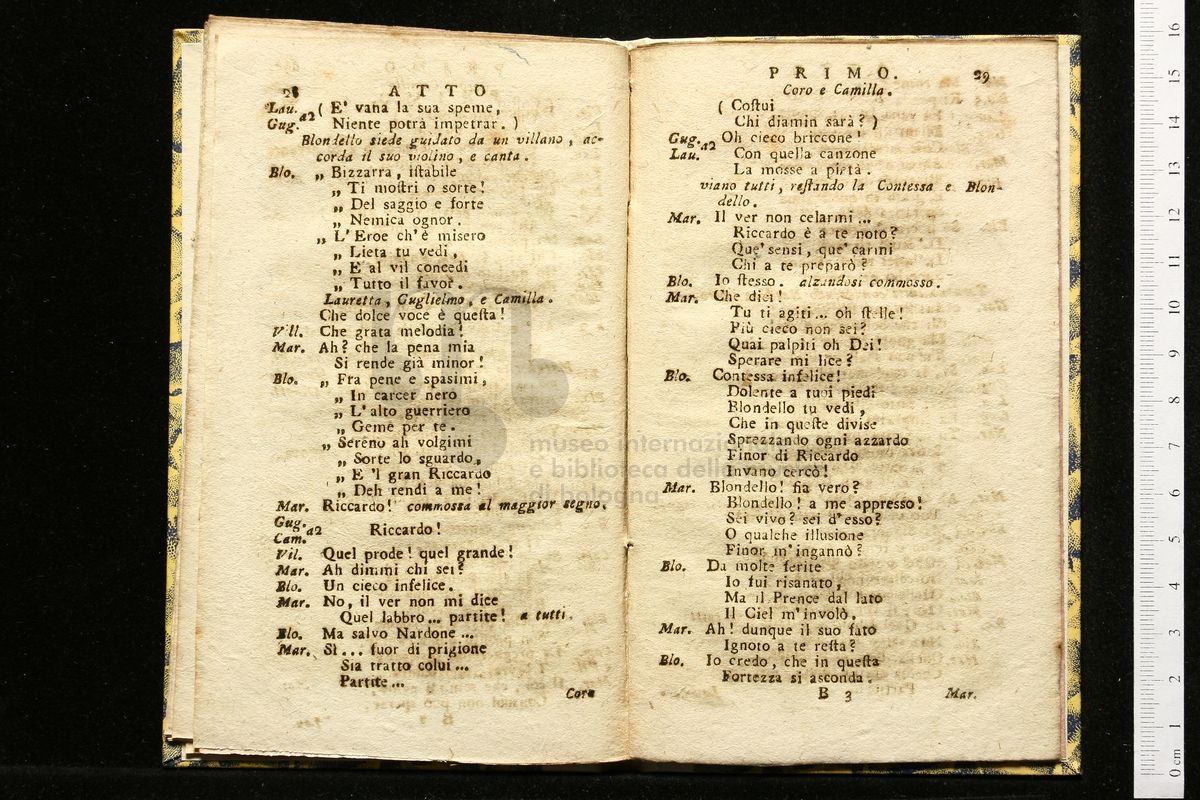 28 ATTO
Lau. a2 ( E' vana la sua speme,
Gug. Niente potrà impetrar. )
Blondello siede guidato da un villano, ac-
corda il suo violino, e canta.
Blo. „ Bizzarra, iſtabile
„ Ti moſtri o sorte!
„ Del saggio e forte
„ Nemica ognor.
„ L'Eroe ch'è misero
„ Lieta tu vedi,
„ E al vil concedi
„ Tutto il favor.
Lauretta, Guglielmo, e Camilla.
Che dolce voce è queſta!
Vill. Che grata melodia!
Mar. Ah? che la pena mia
Si rende già minor!
Blo. „ Fra pene e spasimi,
„ In carcer nero
„ L'alto guerriero
„ Geme per te.
„ Sereno ah volgimi
„ Sorte lo sguardo,
„ E 'l gran Riccardo
„ Deh rendi a me!
Mar. Riccardo! commossa al maggior segno.
Gug. a2 Riccardo!
Cam.
Vil. Quel prode! quel grande!
Mar. Ah dimmi chi sei?
Blo. Un cieco infelice.
Mar. No, il ver non mi dice
Quel labbro... partite! a tutti.
Blo. Ma salvo Nardone ...
Mar. Sì... fuor di prigione
Sia tratto colui ...
Partite ...
Coro
PRIMO. 29
Coro e Camilla.
( Coſtui
Chi diamin sarà? )
Gug. a2 Oh cieco briccone!
Lau. Con quella canzone
La mosse a pietà.
viano tutti, reſtando la Contessa e Blon-
dello.
Mar. Il ver non celarmi ...
Riccardo è a te noto?
Que' sensi, que' carmi
Chi a te preparò?
Blo. Io ſtesso. alzandosi commosso.
Mar. Che dici!
Tu ti agiti... oh ſtelle!
Più cieco non sei?
Quai palpiti oh Dei!
Sperare mi lice?
Blo. Contessa infelice!
Dolente a tuoi piedi
Blondello tu vedi,
Che in queſte divise
Sprezzando ogni azzardo
Finor di Riccardo
Invano cercò!
Mar. Blondello! fia vero?
Blondello! a me appresso!
Sei vivo? sei d'esso?
O qualche illusione
Finor m'ingannò?
Blo. Da molte ferite
Io fui risanato,
Ma il Prence dal lato
Il Ciel m'involò.
Mar. Ah! dunque il suo fato
Ignoto a te reſta?
Blo. Io credo, che in queſta
Fortezza si asconda.
B 3 Mar.
museo internazi
e biblioteca della
di bologna
16
15
14
13
12
11
10
9
8
7
6
5
4
3
2
1
0 cm